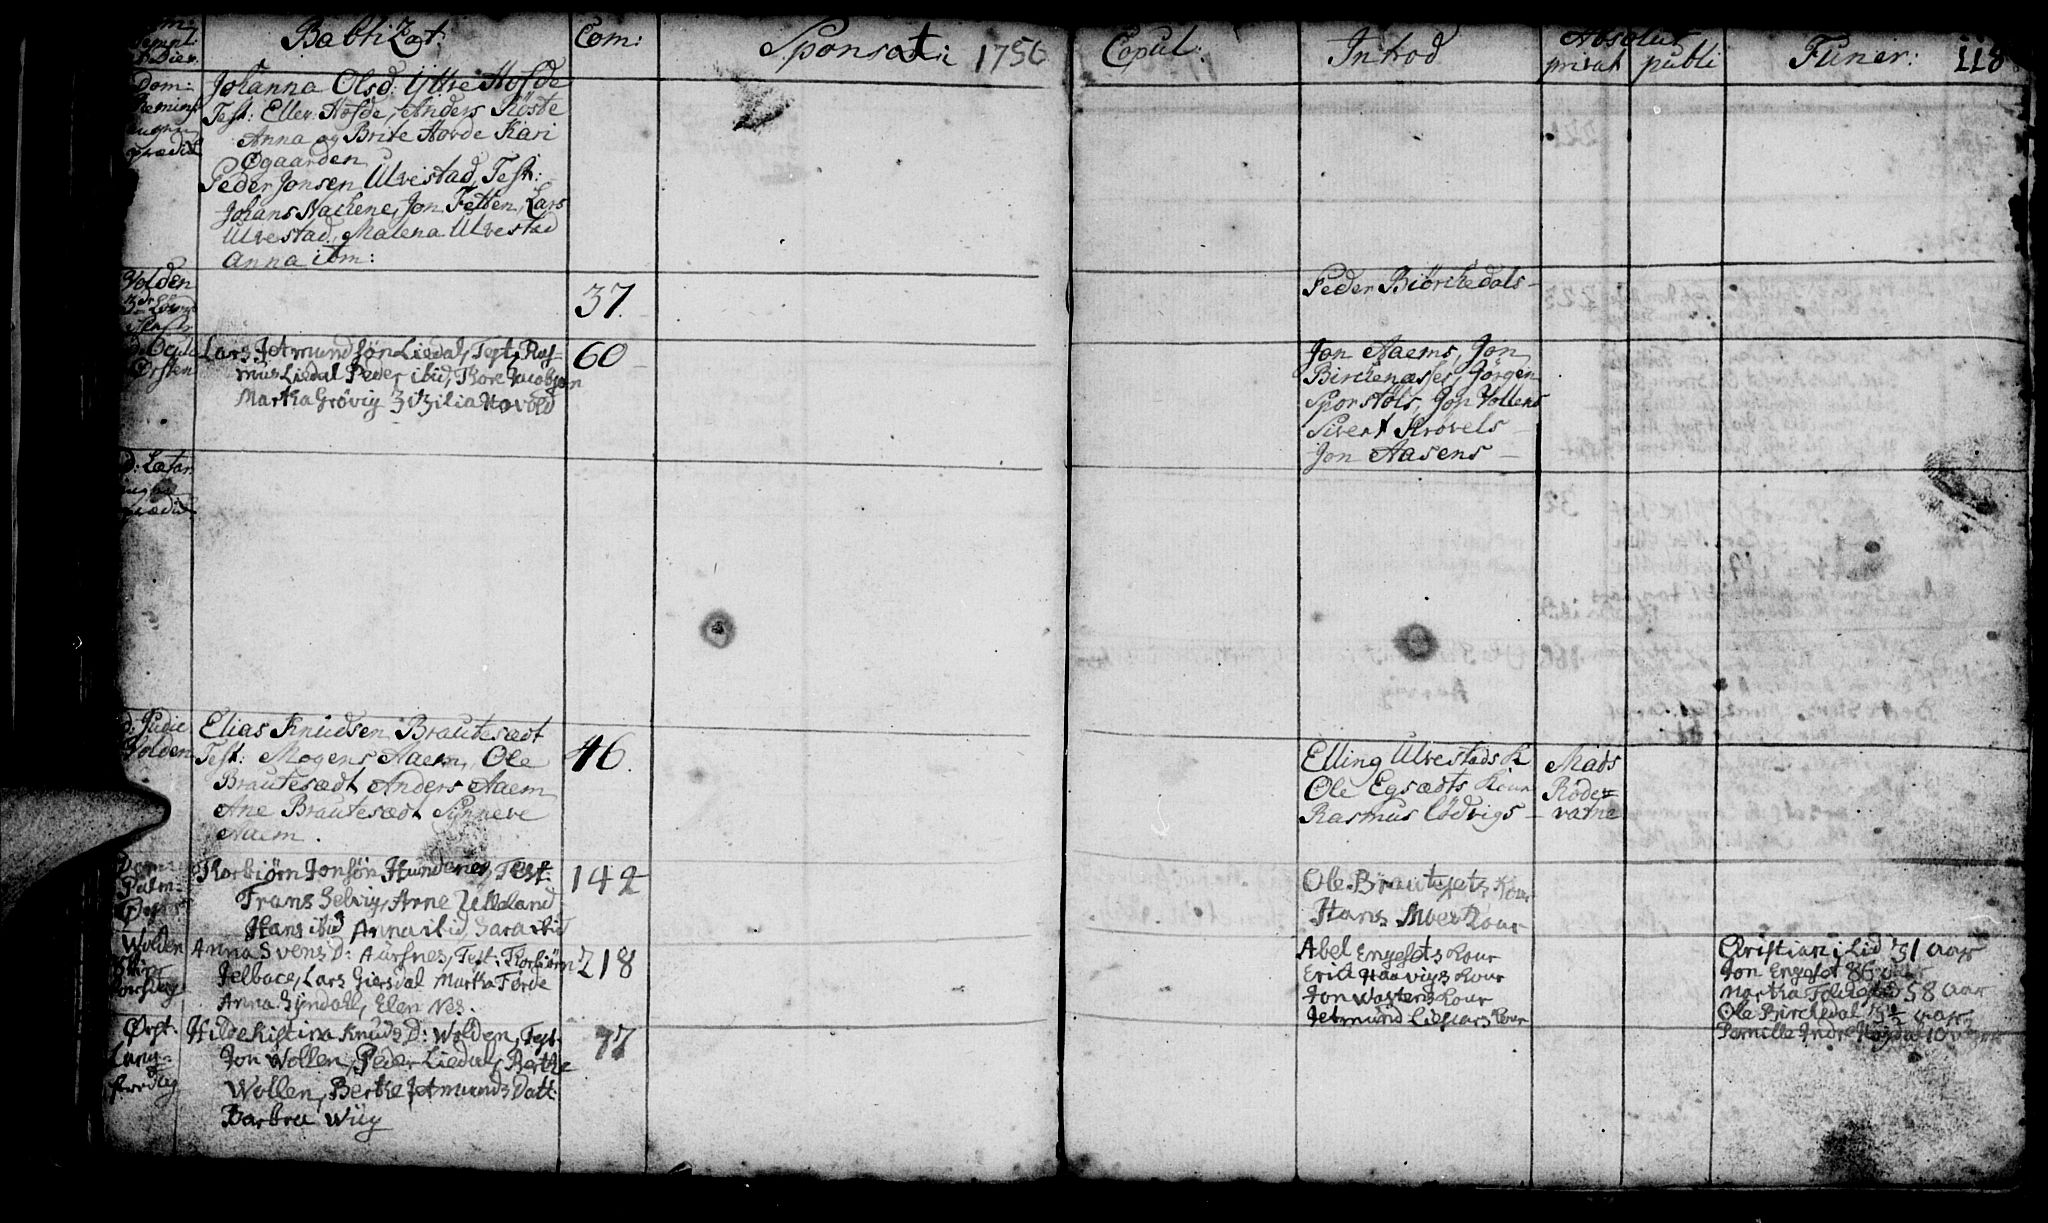 Babtizat:
Com:
Sponsati 1756
Copul:
Introd
Absolut
privat publi
Funer:
118
Templ:
Dier.
Dom:
Johanna Olsd: Yttre Hofde
Test: Eller Hofde, Anders Røste
Anna og Brite Hovde Kari
Øgaarden
Peder Jonsen Ulvestad, Test:
Johans Nackene, Jon Fetten, Lars
Ulvestad, Malena Ulvestad
Anna ibm:
Volden
37.
Peder Biørckedals
d: Oculi
Ørsten
Lars Jetmundsøn Liedal, Test, Ras-
mus Liedal Peder ibid, Thore Jacobsøn
Martha Grøvig Zitzilia Hovold
60
Jon Aaems, Jon
Birckenæsses, Jørgen
Sporstøls, Jon Vollens
Sivert Krøvels
Jon Aasens
d: Lætar
d: Judic
Volden
Elias Knudsen Brautesædt
Test: Mogens Aaem, Ole
Brautesædt Anders Aaem
Ane Brautesædt Sÿnneve
Aaem.
46.
Elling Ulvestads K
Ole Egsædts Kone
Rasmus Lødvigs
Mads
Røde=
varne
Dom
Palm:
Thorbiørn Jonsøn Hundenes, Test:
Frans Selvig, Arne Ulleland
Hans ibid Anna ibid Sara ibid
142
Ole Brautesets Kour
Hans Moes Kour
Wolden
Skier
torsdag
Anna Svens D: Aursnes, Test: Thorbiørn
Jelbace, Lars Giersdal Martha Førde
Anna Lÿndall, Elen Nes.
218
Abel Engesets Kour
Erick Haavigs Kour
Jon Wastens Kour
Jetmund Lieskars Kour
Christian i Lid 31 aar
Jon Engeset 86 aar
Martha Folkestad 58 aar
Ole Birckedal 15½ aar
Pernille Indre Højdal 10
Ørst.
Lang=
fredag
Hilde Kistina Knuds D: Wolden, Test:
Jon Wollen, Peder Liedal, Berthe
Wollen, Berthe Jetmunds Datt:
Barbra Wiig
77